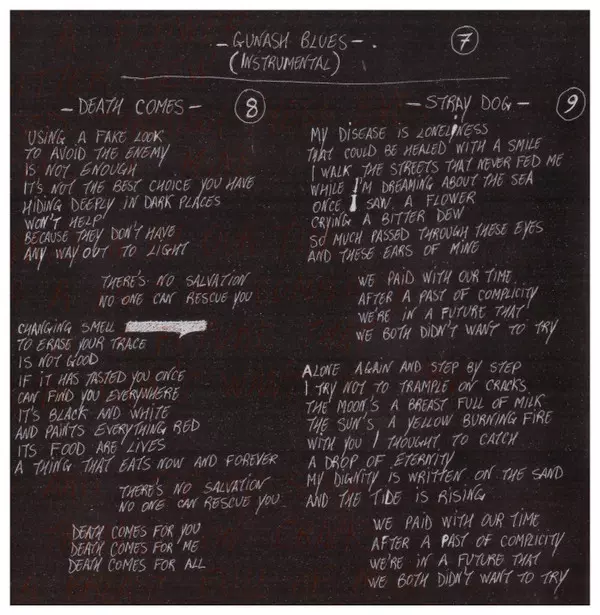 - GUNASH BLUES - . 7
(INSTRUMENTAL)
- DEATH COMES - 8
USING A FAKE LOOK
TO AVOID THE ENEMY
IS NOT ENOUGH
IT'S NOT THE BEST CHOICE YOU HAVE
HIDING DEEPLY IN DARK PLACES
WON'T HELP
BECAUSE THEY DON'T HAVE
ANY WAY OUT TO LIGHT
THERE'S NO SALVATION
NO ONE CAN RESCUE YOU
CHANGING SMELL
TO ERASE YOUR TRACE
IS NOT GOOD
IF IT HAS TASTED YOU ONCE
CAN FIND YOU EVERYWHERE
IT'S BLACK AND WHITE
AND PAINTS EVERYTHING RED
ITS FOOD ARE LIVES
A THING THAT EATS NOW AND FOREVER
THERE'S NO SALVATION
NO ONE CAN RESCUE YOU
DEATH COMES FOR YOU
DEATH COMES FOR ME
DEATH COMES FOR ALL
- STRAY DOG - 9
MY DISEASE IS LONELINESS
THAT COULD BE HEALED WITH A SMILE
I WALK THE STREETS THAT NEVER FED ME
WHILE I'M DREAMING ABOUT THE SEA
ONCE I SAW A FLOWER
CRYING A BITTER DEW
SO MUCH PASSED THROUGH THESE EYES
AND THESE EARS OF MINE
WE PAID WITH OUR TIME
AFTER A PAST OF COMPLICITY
WE'RE IN A FUTURE THAT
WE BOTH DIDN'T WANT TO TRY
ALONE AGAIN AND STEP BY STEP
I TRY NOT TO TRAMPLE ON CRACKS
THE MOON'S A BREAST FULL OF MILK
THE SUN'S A YELLOW BURNING FIRE
WITH YOU I THOUGHT TO CATCH
A DROP OF ETERNITY
MY DIGNITY IS WRITTEN ON THE SAND
AND THE TIDE IS RISING
WE PAID WITH OUR TIME
AFTER A PAST OF COMPLICITY
WE'RE IN A FUTURE THAT
WE BOTH DIDN'T WANT TO TRY